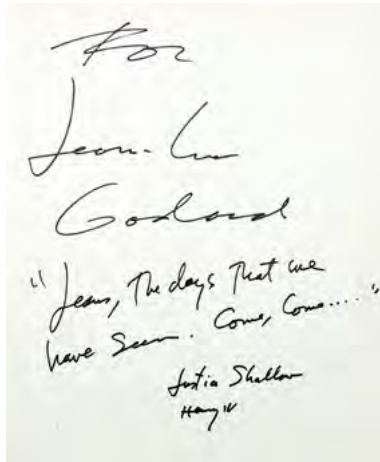 For
Jean-Luc
Godard
"Jesus, The days that we
have seen. Come, Come...."
Justice Shallow
Henry IV